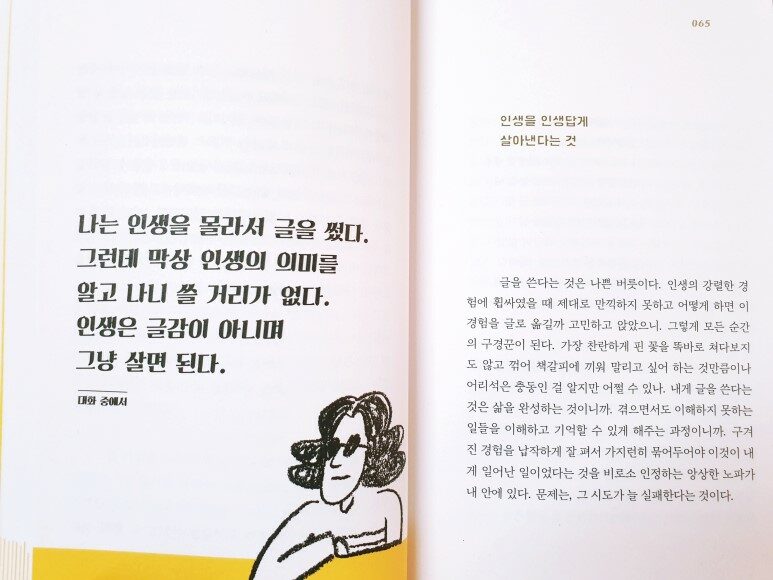 나는 인생을 몰라서 글을 썼다.
그런데 막상 인생의 의미를
알고 나니 쓸 거리가 없다.
인생은 글감이 아니며
그냥 살면 된다.
대화 중에서
065
인생을 인생답게
살아낸다는 것
글을 쓴다는 것은 나쁜 버릇이다. 인생의 강렬한 경
험에 휩싸였을 때 제대로 만끽하지 못하고 어떻게 하면 이
경험을 글로 옮길까 고민하고 앉았으니. 그렇게 모든 순간
의 구경꾼이 된다. 가장 찬란하게 핀 꽃을 똑바로 쳐다보지
도 않고 꺾어 책갈피에 끼워 말리고 싶어 하는 것만큼이나
어리석은 충동인 걸 알지만 어쩔 수 있나. 내게 글을 쓴다는
것은 삶을 완성하는 것이니까. 겪으면서도 이해하지 못하는
일들을 이해하고 기억할 수 있게 해주는 과정이니까. 구겨
진 경험을 납작하게 잘 펴서 가지런히 묶어두어야 이것이 내
게 일어난 일이었다는 것을 비로소 인정하는 앙상한 노파가
내 안에 있다. 문제는, 그 시도가 늘 실패한다는 것이다.